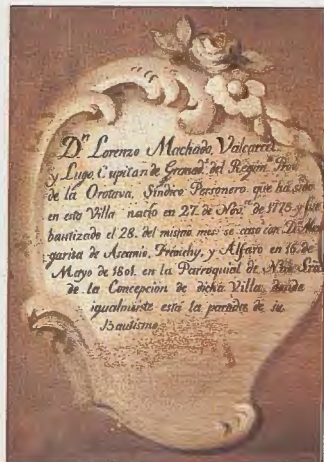 Dⁿ. Lorenzo Machado, Valcarcel
y Lugo, Capitan de Granadˢ. del Regimᵗᵒ. Proᵛ
de la Orotava, Sindico Personero que ha sido
en esta Villa nacío en 27. de Novᵉ. de 1775 y fue
bautizado el 28. del mismo mes: se caso con Dᵃ. Mar
garita de Ascanio, Frànchy, y Alfaro en 16. de
Mayo de 1801. en la Parroquial de Nᵗʳᵃ. Srâ
de la Concepcion de dicha Villa, donde
igualmente está la partida de su
Bautismo.